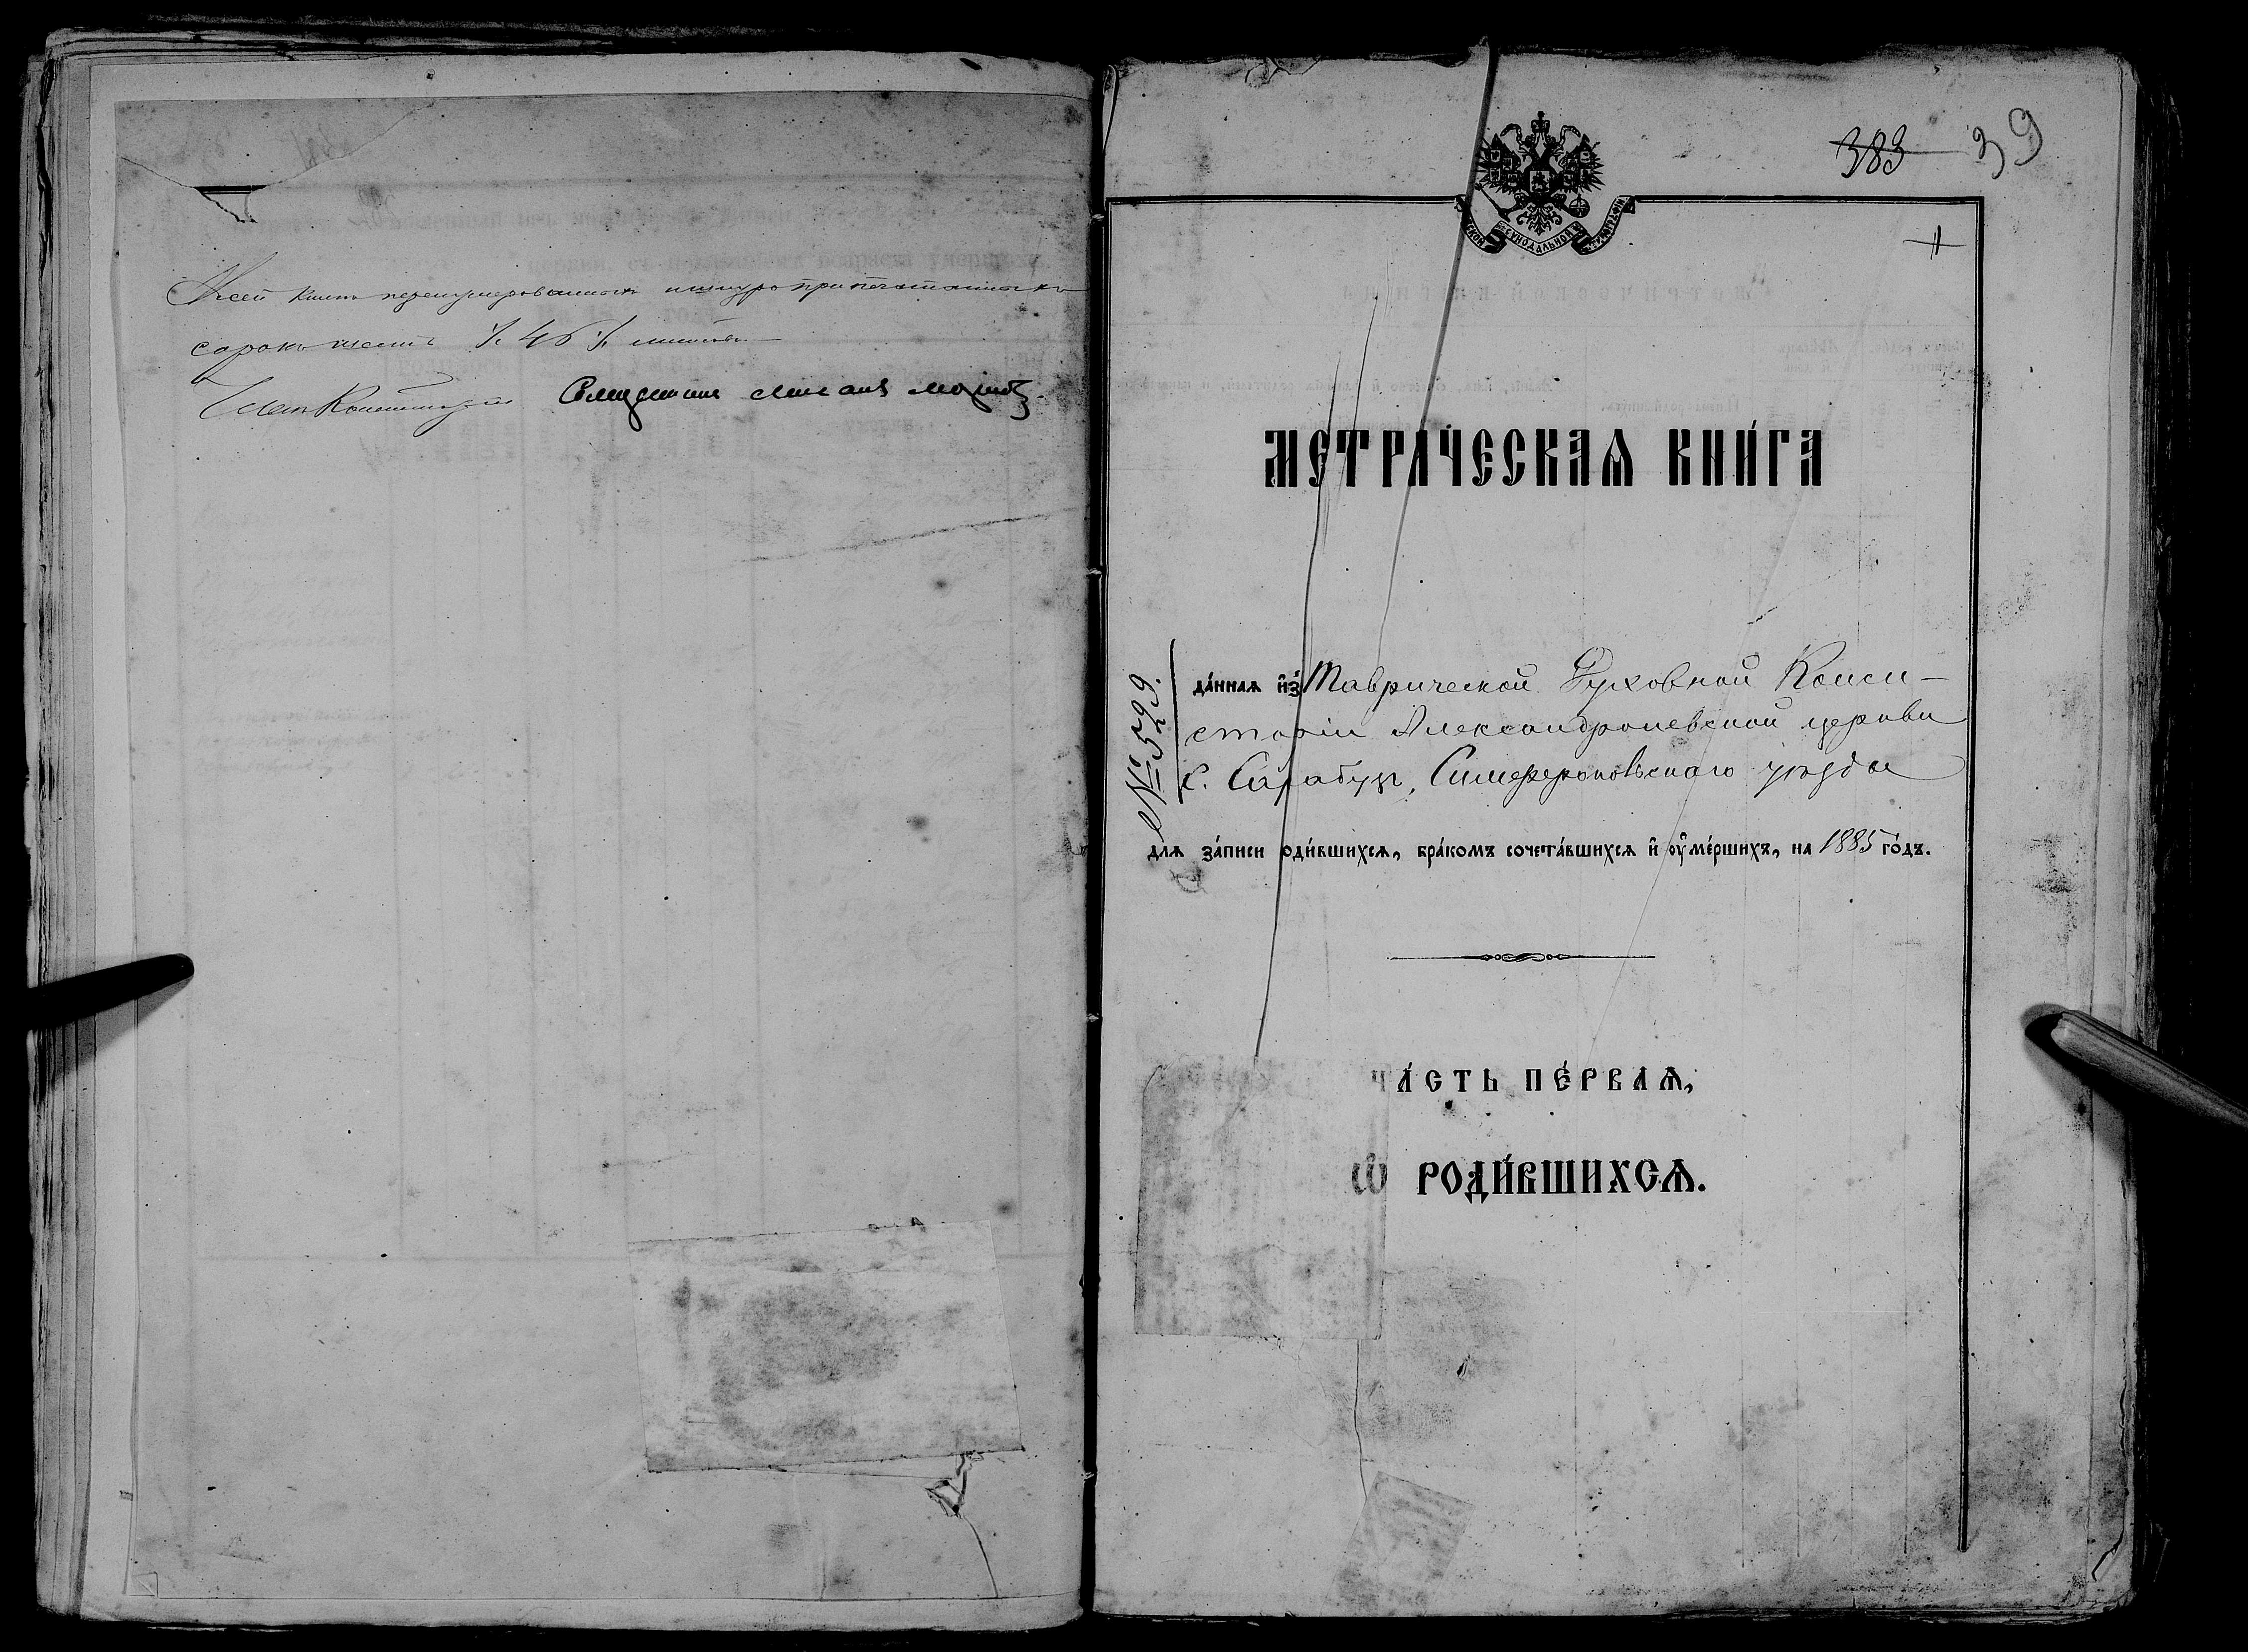 сей книги перенумерованныхъ шнуроприпечатанныхъ
сорокъ шесть 46 листовъ
Членъ Консисторіи Священникъ
383 39
СѴНОДАЛЬНОЙ
МЕТРИ́ЧЕСКАѦ КНИ́ГА
№ 529.
да́ннаѧ и҆з̾ Таврической Духовной Конси-
сторіи Александроневской церкви
с. Сарабузъ, Симферопольскаго уѣзда
длѧ за́писи роди́вшихсѧ, бра́комъ сочета́вшихсѧ и҆ оу҆ме́ршихъ, на 1885 го́дъ.
ЧА́СТЬ ПЕ́РВАѦ,
Ѽ РОДИ́ВШИХСѦ.